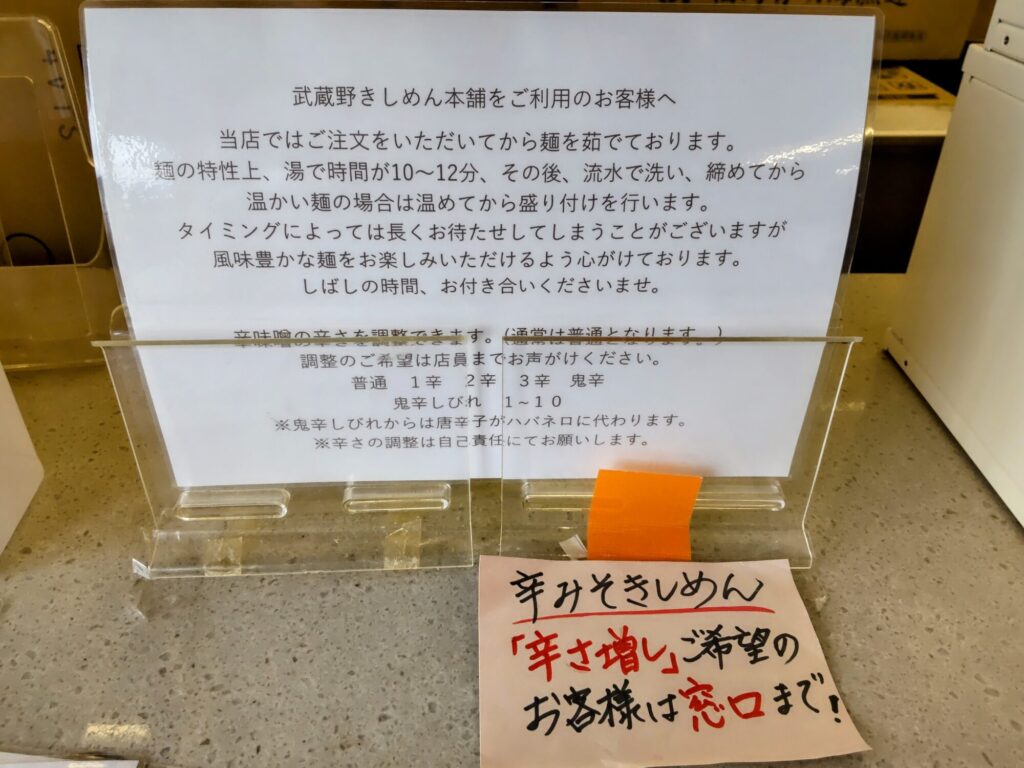 武蔵野きしめん本舗をご利用のお客様へ
当店ではご注文をいただいてから麺を茹でております。
麺の特性上、湯で時間が10～12分、その後、流水で洗い、締めてから
温かい麺の場合は温めてから盛り付けを行います。
タイミングによっては長くお待たせしてしまうことがございますが
風味豊かな麺をお楽しみいただけるよう心がけております。
しばしの時間、お付き合いくださいませ。
辛味噌の辛さを調整できます。(通常は普通となります。)
調整のご希望は店員までお声がけください。
普通　１辛　２辛　３辛　鬼辛
鬼辛しびれ　１~１０
※鬼辛しびれからは唐辛子がハバネロに代わります。
※辛さの調整は自己責任にてお願いします。
辛みそきしめん
「辛さ増し」ご希望の
お客様は窓口まで!